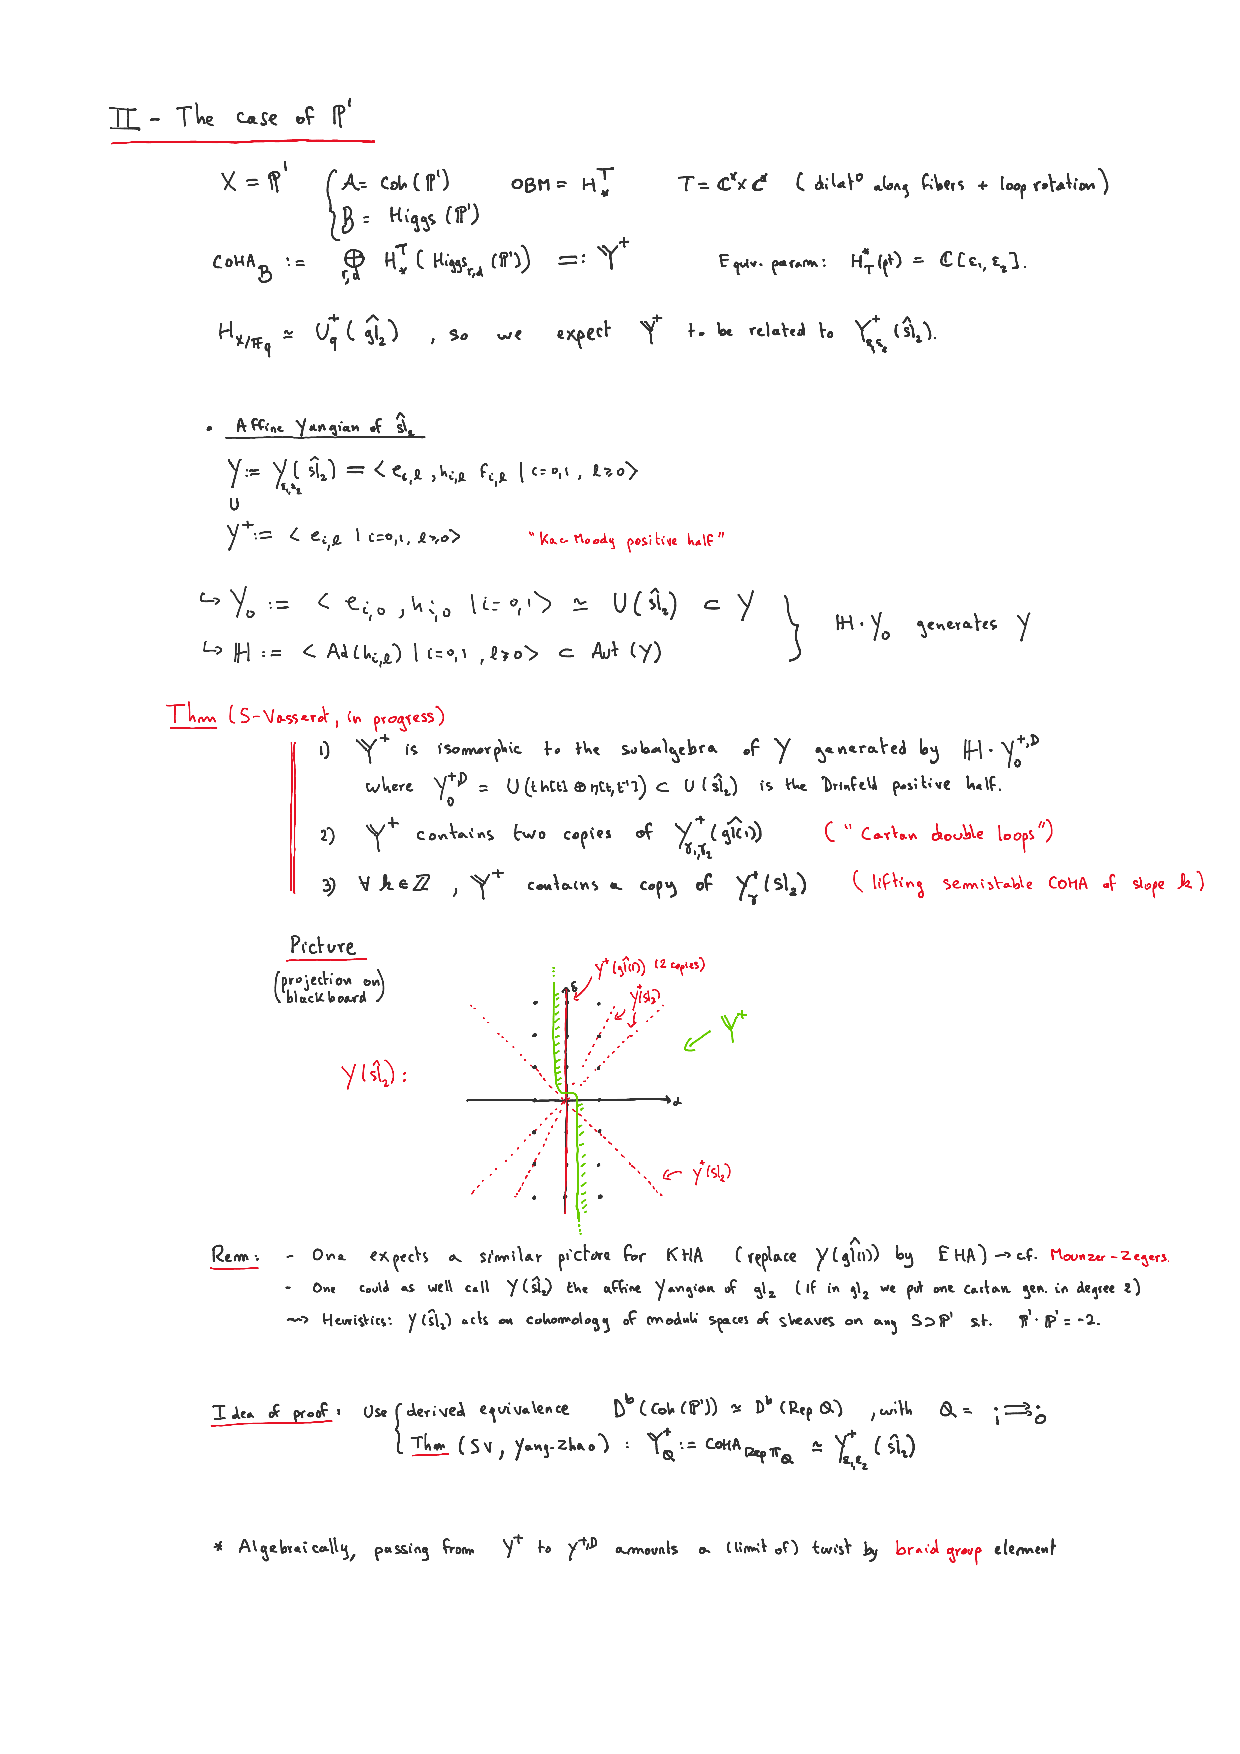 II - The case of ℙ¹
X = ℙ¹ { A = Coh(ℙ¹) OBM = H_*^T T = ℂ^x × ℂ^x (dilat° along fibers + loop rotation)
B = Higgs(ℙ¹)
COHA_B := ⊕_{r,d} H_*^T(Higgs_{r,d}(ℙ¹)) =: 𝕐⁺ Equiv. param: H_T^*(pt) = ℂ[ε₁,ε₂].
H_{X/𝔽q} ≃ U_q^+(ĝl₂) , so we expect 𝕐⁺ to be related to Y^+_{ε₁ε₂}(ŝl₂).
• Affine Yangian of ŝl₂
Y := Y_{ε₁,ε₂}(ŝl₂) = < e_{i,l}, h_{i,l} f_{i,l} | i=0,1, l≥0 >
∪
Y⁺ := < e_{i,l} | i=0,1, l≥0 > "Kac Moody positive half"
↪ Y₀ := < e_{i,0}, h_{i,0} | i=0,1 > ≃ U(ŝl₂) ⊂ Y } ℍ·Y₀ generates Y
↪ ℍ := < Ad(h_{i,l}) | i=0,1, l≥0 > ⊂ Aut(Y)
Thm (S-Vasserot, in progress)
1) 𝕐⁺ is isomorphic to the subalgebra of Y generated by ℍ·Y₀^{+,D}
where Y₀^{+D} = U(th[t] ⊕ n[t,t⁻¹]) ⊂ U(ŝl₂) is the Drinfeld positive half.
2) 𝕐⁺ contains two copies of Y^+_{γ₁,γ₂}(ĝl(1)) ("Cartan double loops")
3) ∀ k∈ℤ, 𝕐⁺ contains a copy of Y^+_γ(sl₂) (lifting semistable COHA of slope k)
Picture
(projection on blackboard)
Y⁺(ĝl(1)) (2 copies)
δ
Y⁺(sl₂)
𝕐⁺
Y(ŝl₂):
α
Y⁺(sl₂)
Rem: - One expects a similar picture for KHA (replace Y(ĝl(1)) by EHA) → cf. Mounzer-Zegers.
- One could as well call Y(ŝl₂) the affine Yangian of gl₂ (if in gl₂ we put one cartan gen. in degree 2)
⇝ Heuristics: Y(ŝl₂) acts on cohomology of moduli spaces of sheaves on any S⊃ℙ¹ s.t. ℙ¹·ℙ¹ = -2.
Idea of proof: Use { derived equivalence D^b(Coh(ℙ¹)) ≃ D^b(Rep Q) , with Q = 1⇉0
Thm (SV, Yang-Zhao): Y_Q^+ := COHA_{Rep Π_Q} ≃ Y^+_{ε₁,ε₂}(ŝl₂)
* Algebraically, passing from Y⁺ to Y^{+,D} amounts a (limit of) twist by braid group element